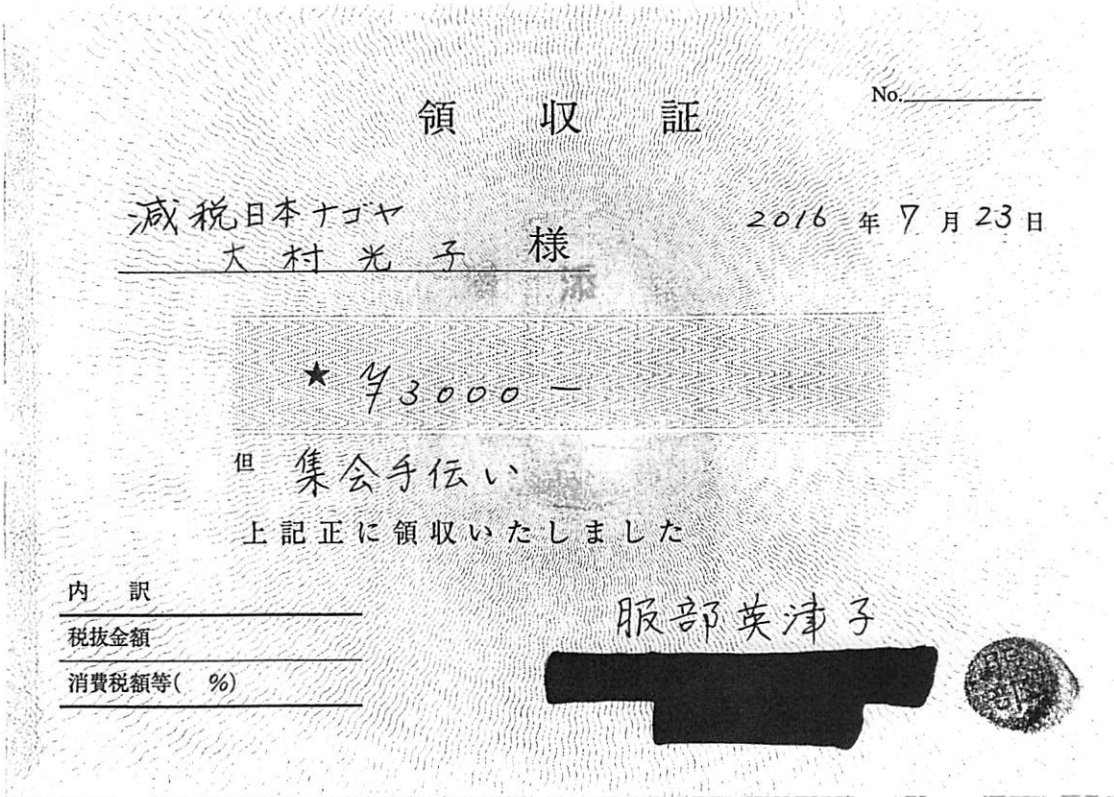 No.
領収証
減税日本ナゴヤ
大村光子 様
2016年7月23日
★ ¥3000-
但 集会手伝い
上記正に領収いたしました
内訳
税抜金額
消費税額等( %)
服部英津子
服部